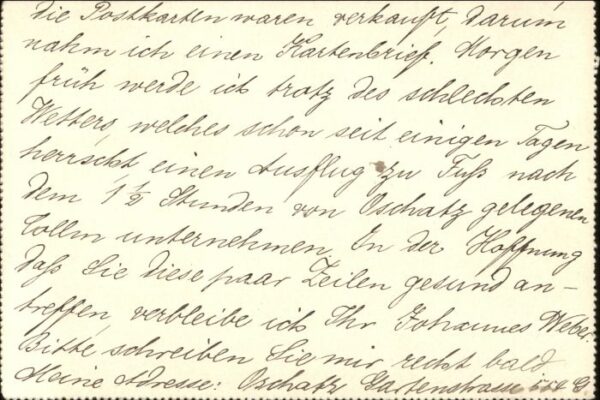 die Postkarten waren verkauft, darum
nahm ich einen Kartenbrief. Morgen
früh werde ich trotz des schlechten
Wetters, welches schon seit einigen Tagen
herrscht einen Ausflug zu Fuß nach
dem 1½ Stunden von Oschatz gelegenen
Collm unternehmen. In der Hoffnung
daß Sie diese paar Zeilen gesund an-
treffen, verbleibe ich Ihr Johannes Weber.
Bitte schreiben Sie mir recht bald
Meine Adresse: Oschatz Gartenstrasse